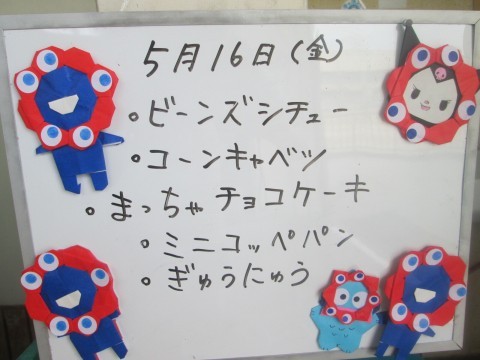 5月16日(金)
・ビーンズシチュー
・コーンキャベツ
・まっちゃチョコケーキ
・ミニコッペパン
・ぎゅうにゅう